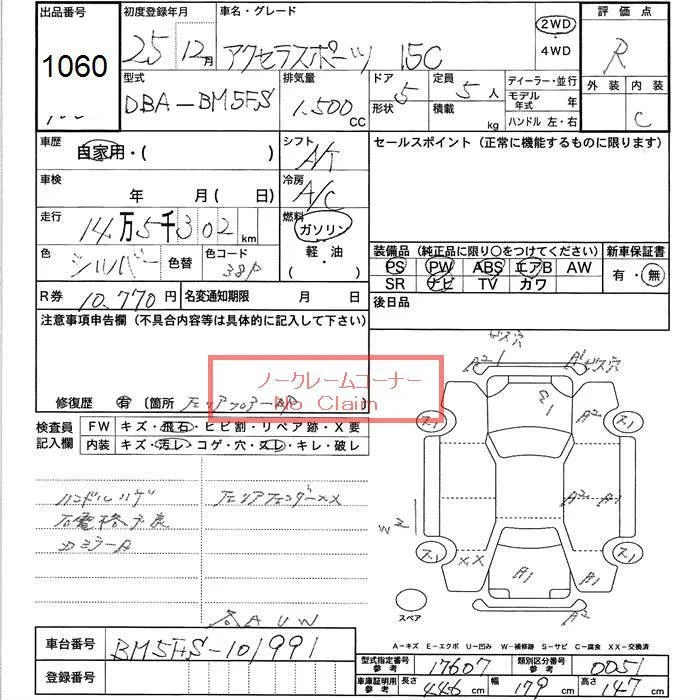 出品番号 初度登録年月 車名・グレード 2WD 評価点
1060 25 12月 アクセラスポーツ 15C ・4WD R
型式 排気量 ドア 定員 ディーラー・並行 外装 内装
DBA-BM5FS 1.500 CC 形状 5 5人 モデル年式 年
積載 kg ハンドル 左・右 C
車歴 自家用・( ) シフト A/T セールスポイント(正常に機能するものに限ります)
車検 年 月(日) 冷房 A/C
走行 14万5千302 km 燃料 ガソリン
色 シルバー 色替 色コード 38P 軽・油 ( )
装備品(純正品に限り○をつけてください) 新車保証書
PS PW ABS エアB AW 有・無
SR ナビ TV カワ
R券 10.770円 名変通知期限 月 日 後日品
注意事項申告欄(不具合内容等は具体的に記入して下さい)
ノークレームコーナー
No Claim
修復歴 有 〔箇所
検査員記入欄 FW キズ・飛石・ヒビ割・リペア跡・X要
内装 キズ・汚レ・コゲ・穴・スレ・キレ・破レ
ビス穴 A2 A1 ビス穴
A2
ス1 ス1
A2 A1
ス1 XX A1 A1 ス1
ハンドルハゲ 左リアフェンダーXX
スペア
A-キズ E-エクボ U-凹み W-補修跡 S-サビ C-腐食 XX-交換済
車台番号 BM5FS-101991
登録番号
型式指定番号 参考 17607 類別区分番号 参考 0051
車庫証明用 参考 長さ 446 cm 幅 179 cm 高さ 147 cm